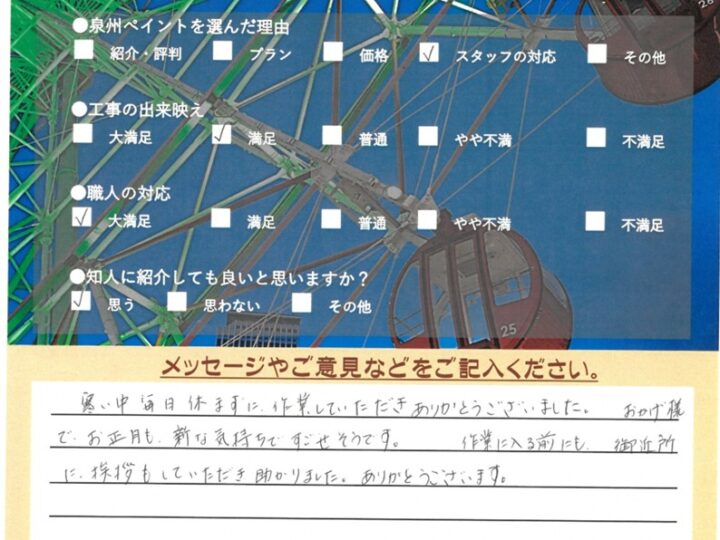 ●泉州ペイントを選んだ理由
紹介・評判 プラン 価格 スタッフの対応 その他
●工事の出来映え
大満足 満足 普通 やや不満 不満足
●職人の対応
大満足 満足 普通 やや不満 不満足
●知人に紹介しても良いと思いますか？
思う 思わない その他
26
25
メッセージやご意見などをご記入ください。
寒い中毎日休まずに、作業していただきありがとうございました。 おかげ様
で、お正月も、新な気持ちですごせそうです。 作業に入る前にも、御近所
に、挨拶もしていただき助かりました。ありがとうございます。